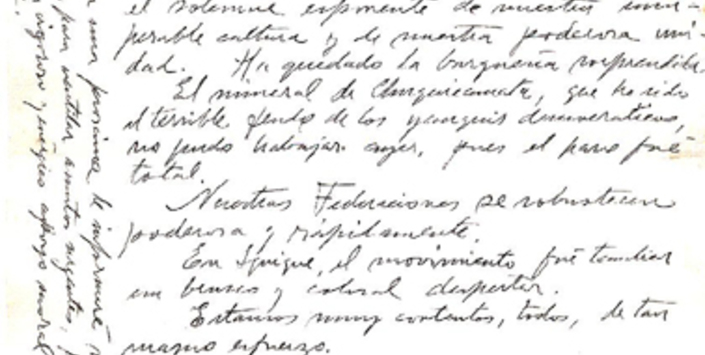 el solemne exponente de nuestra insu-
perable cultura y de nuestra poderosa uni-
dad. Ha quedado la burguesía sorprendida.
El mineral de Chuquicamata, que ha sido
el terrible feudo de los yanquis
no pudo trabajar ayer, pues el paro fué
total.
Nuestras Federaciones se robustecen
poderosa y rápidamente.
En Iquique, el movimiento fué también
un hermoso y colosal despertar.
Estamos muy contentos, todos, de tan
magno esfuerzo.
le informaré
para ventilar asuntos urgentes,
vigoroso y enérgico apoyo moral